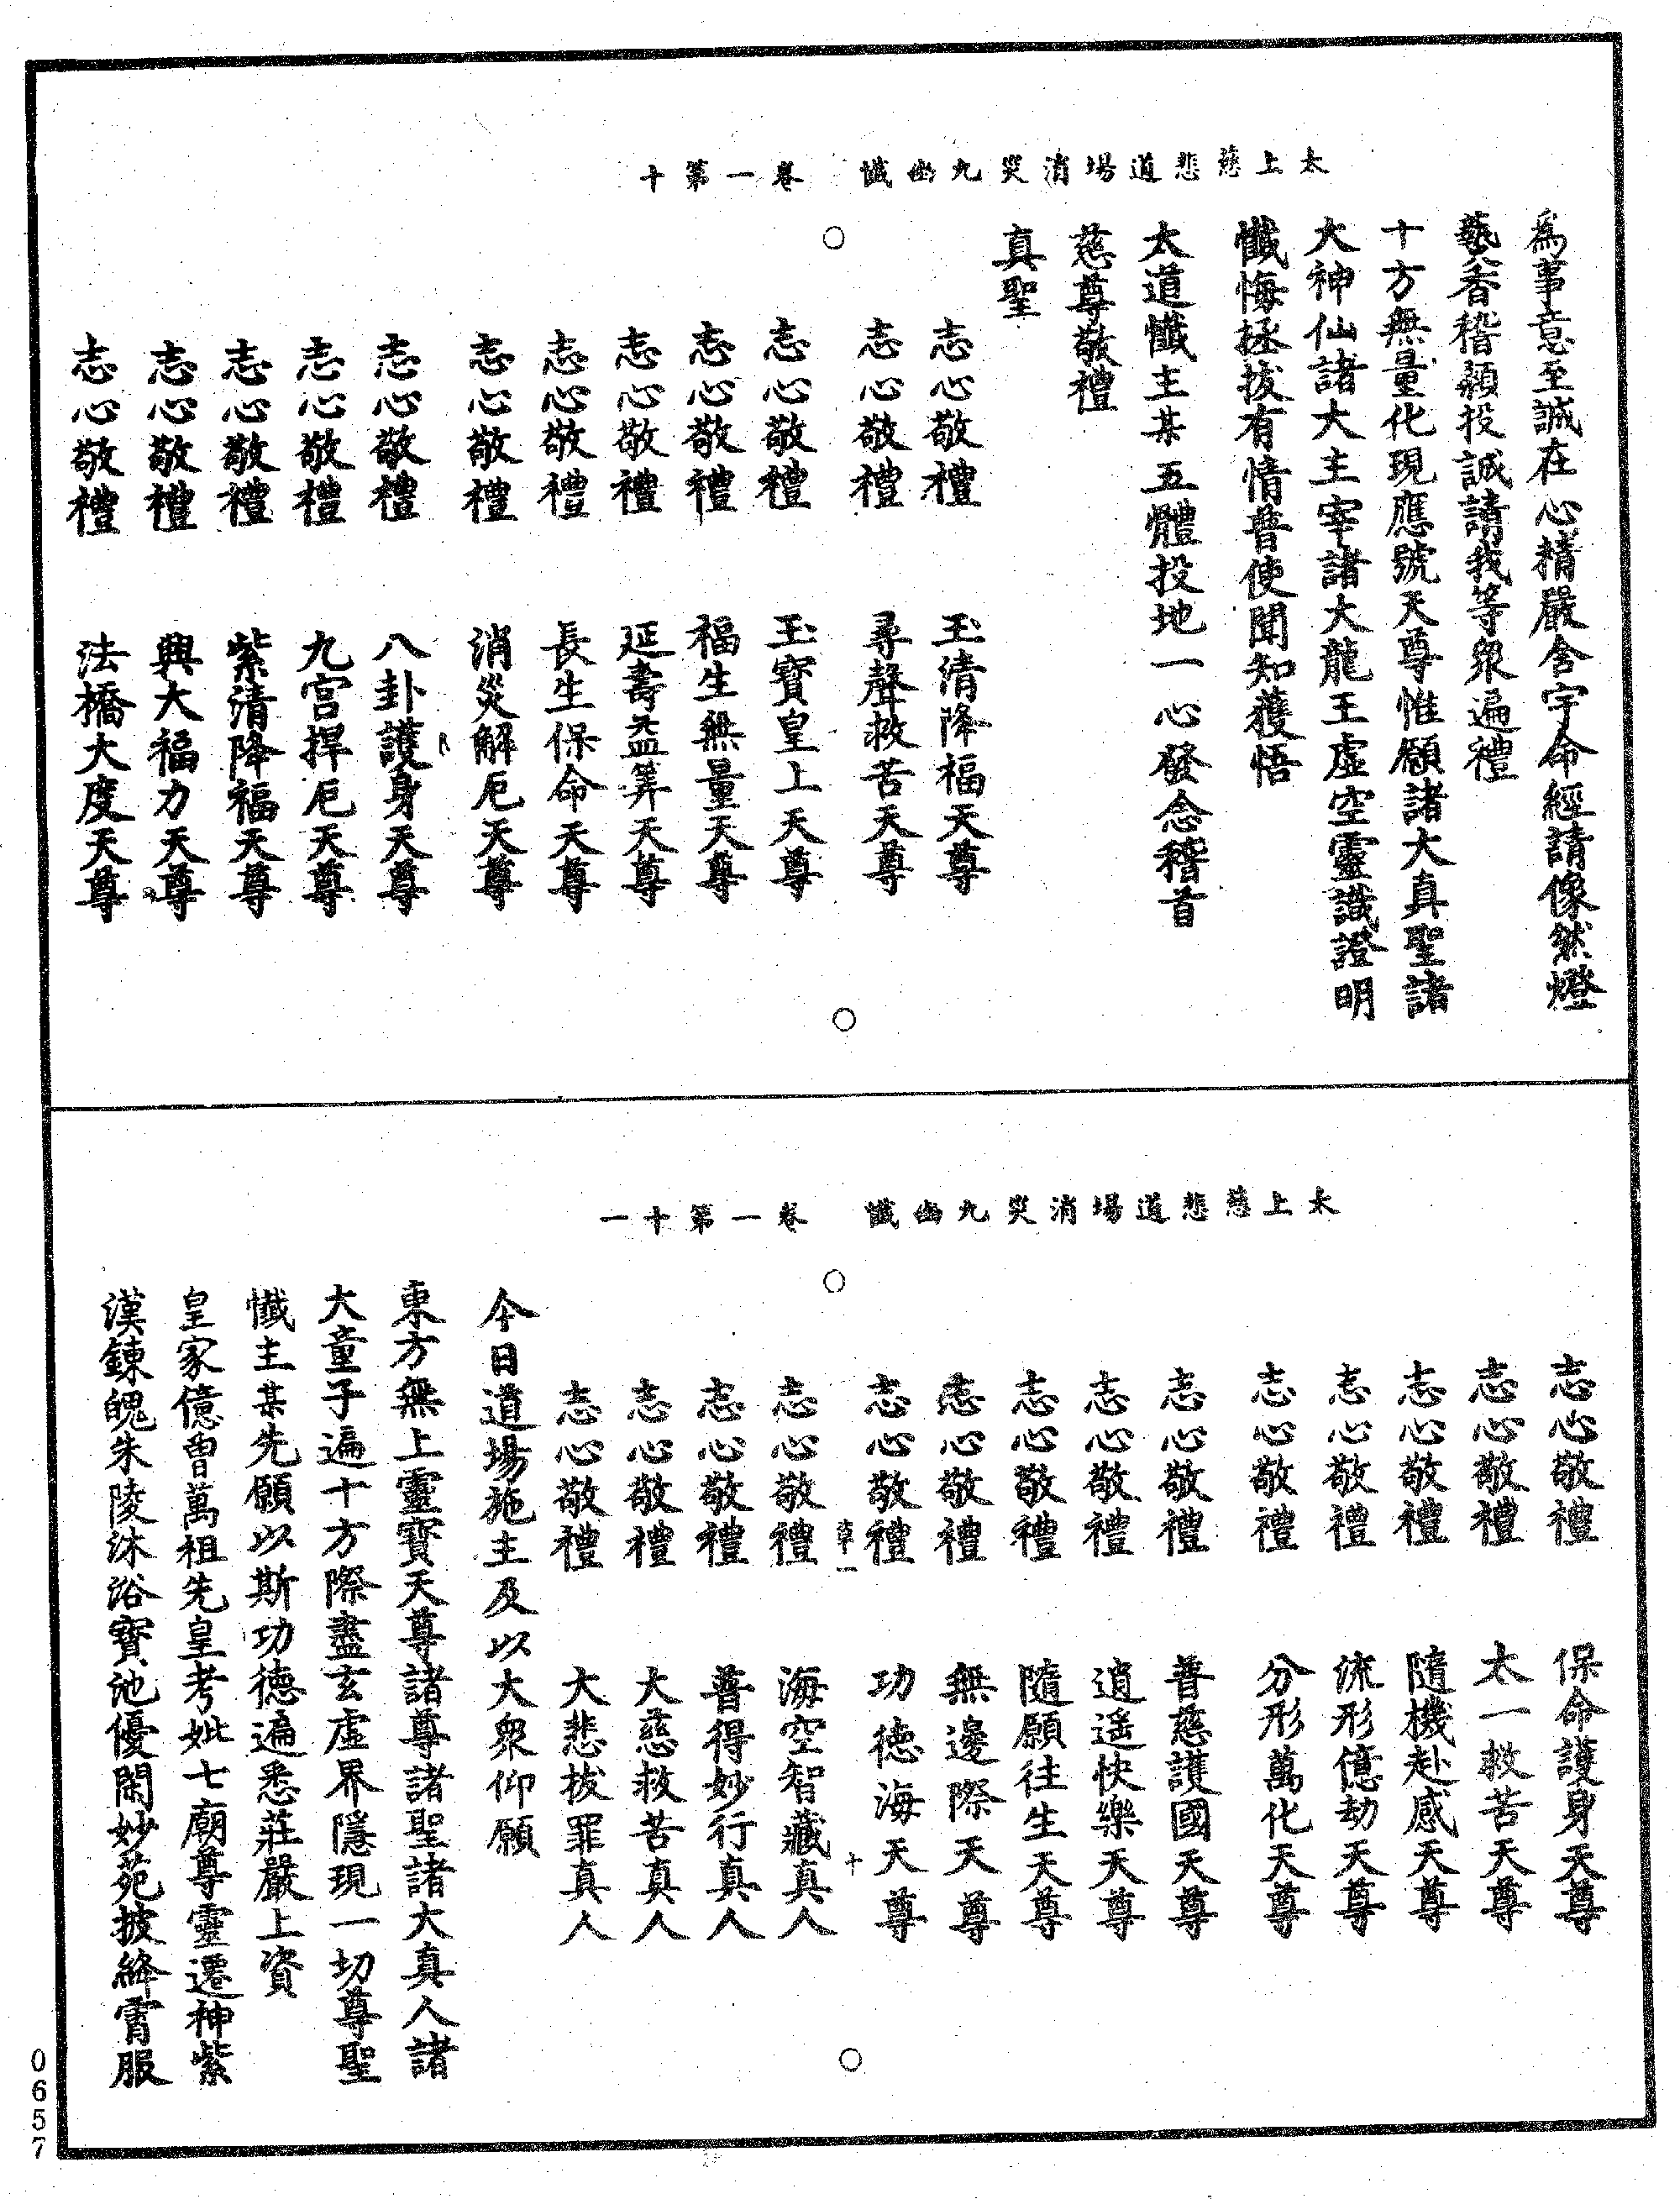 太上慈悲道場消災九幽懺　卷一第十
為事意至誠在心精嚴舍宇命經請像然燈
爇香稽顙投誠請我等眾遍禮
十方無量化現應號天尊惟願諸大真聖諸
大神仙諸大主宰諸大龍王虛空靈識證明
懺悔拯拔有情普使聞知獲悟
太道懺主某五體投地一心發念稽首
慈尊敬禮
真聖
志心敬禮　玉清降福天尊
志心敬禮　尋聲救苦天尊
志心敬禮　玉寶皇上天尊
志心敬禮　福生無量天尊
志心敬禮　延壽益筭天尊
志心敬禮　長生保命天尊
志心敬禮　消災解厄天尊
志心敬禮　八卦護身天尊
志心敬禮　九宮捍厄天尊
志心敬禮　紫清降福天尊
志心敬禮　興大福力天尊
志心敬禮　法橋大度天尊
太上慈悲道場消災九幽懺　卷一第十一
志心敬禮　保命護身天尊
志心敬禮　太一救苦天尊
志心敬禮　隨機赴感天尊
志心敬禮　流形億劫天尊
志心敬禮　分形萬化天尊
志心敬禮　普慈護國天尊
志心敬禮　逍遙快樂天尊
志心敬禮　隨願往生天尊
志心敬禮　無邊際天尊
志心敬禮　功德海天尊
十
志心敬禮　海空智藏真人
志心敬禮　普得妙行真人
志心敬禮　大慈救苦真人
志心敬禮　大悲拔罪真人
今日道場施主及以大眾仰願
東方無上靈寶天尊諸尊諸聖諸大真人諸
大童子遍十方際盡玄虛界隱現一切尊聖
懺主某先願以斯功德遍悉莊嚴上資
皇家億曾萬祖先皇考妣七廟尊靈遷神紫
漢鍊魄朱陵沐浴寶池優閑妙苑披絳霄服
0657